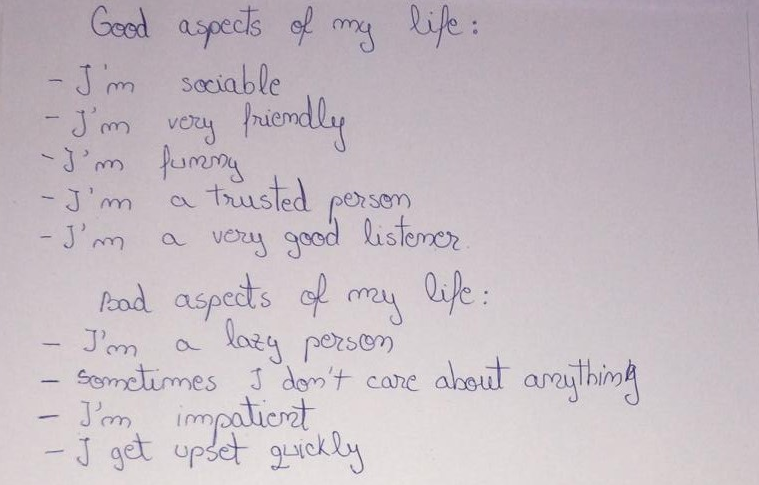 Good aspects of my life:
- I'm sociable
- I'm very friendly
- I'm funny
- I'm a trusted person
- I'm a very good listener.
Bad aspects of my life:
- I'm a lazy person
- sometimes I don't care about anything
- I'm impatient
- I get upset quickly